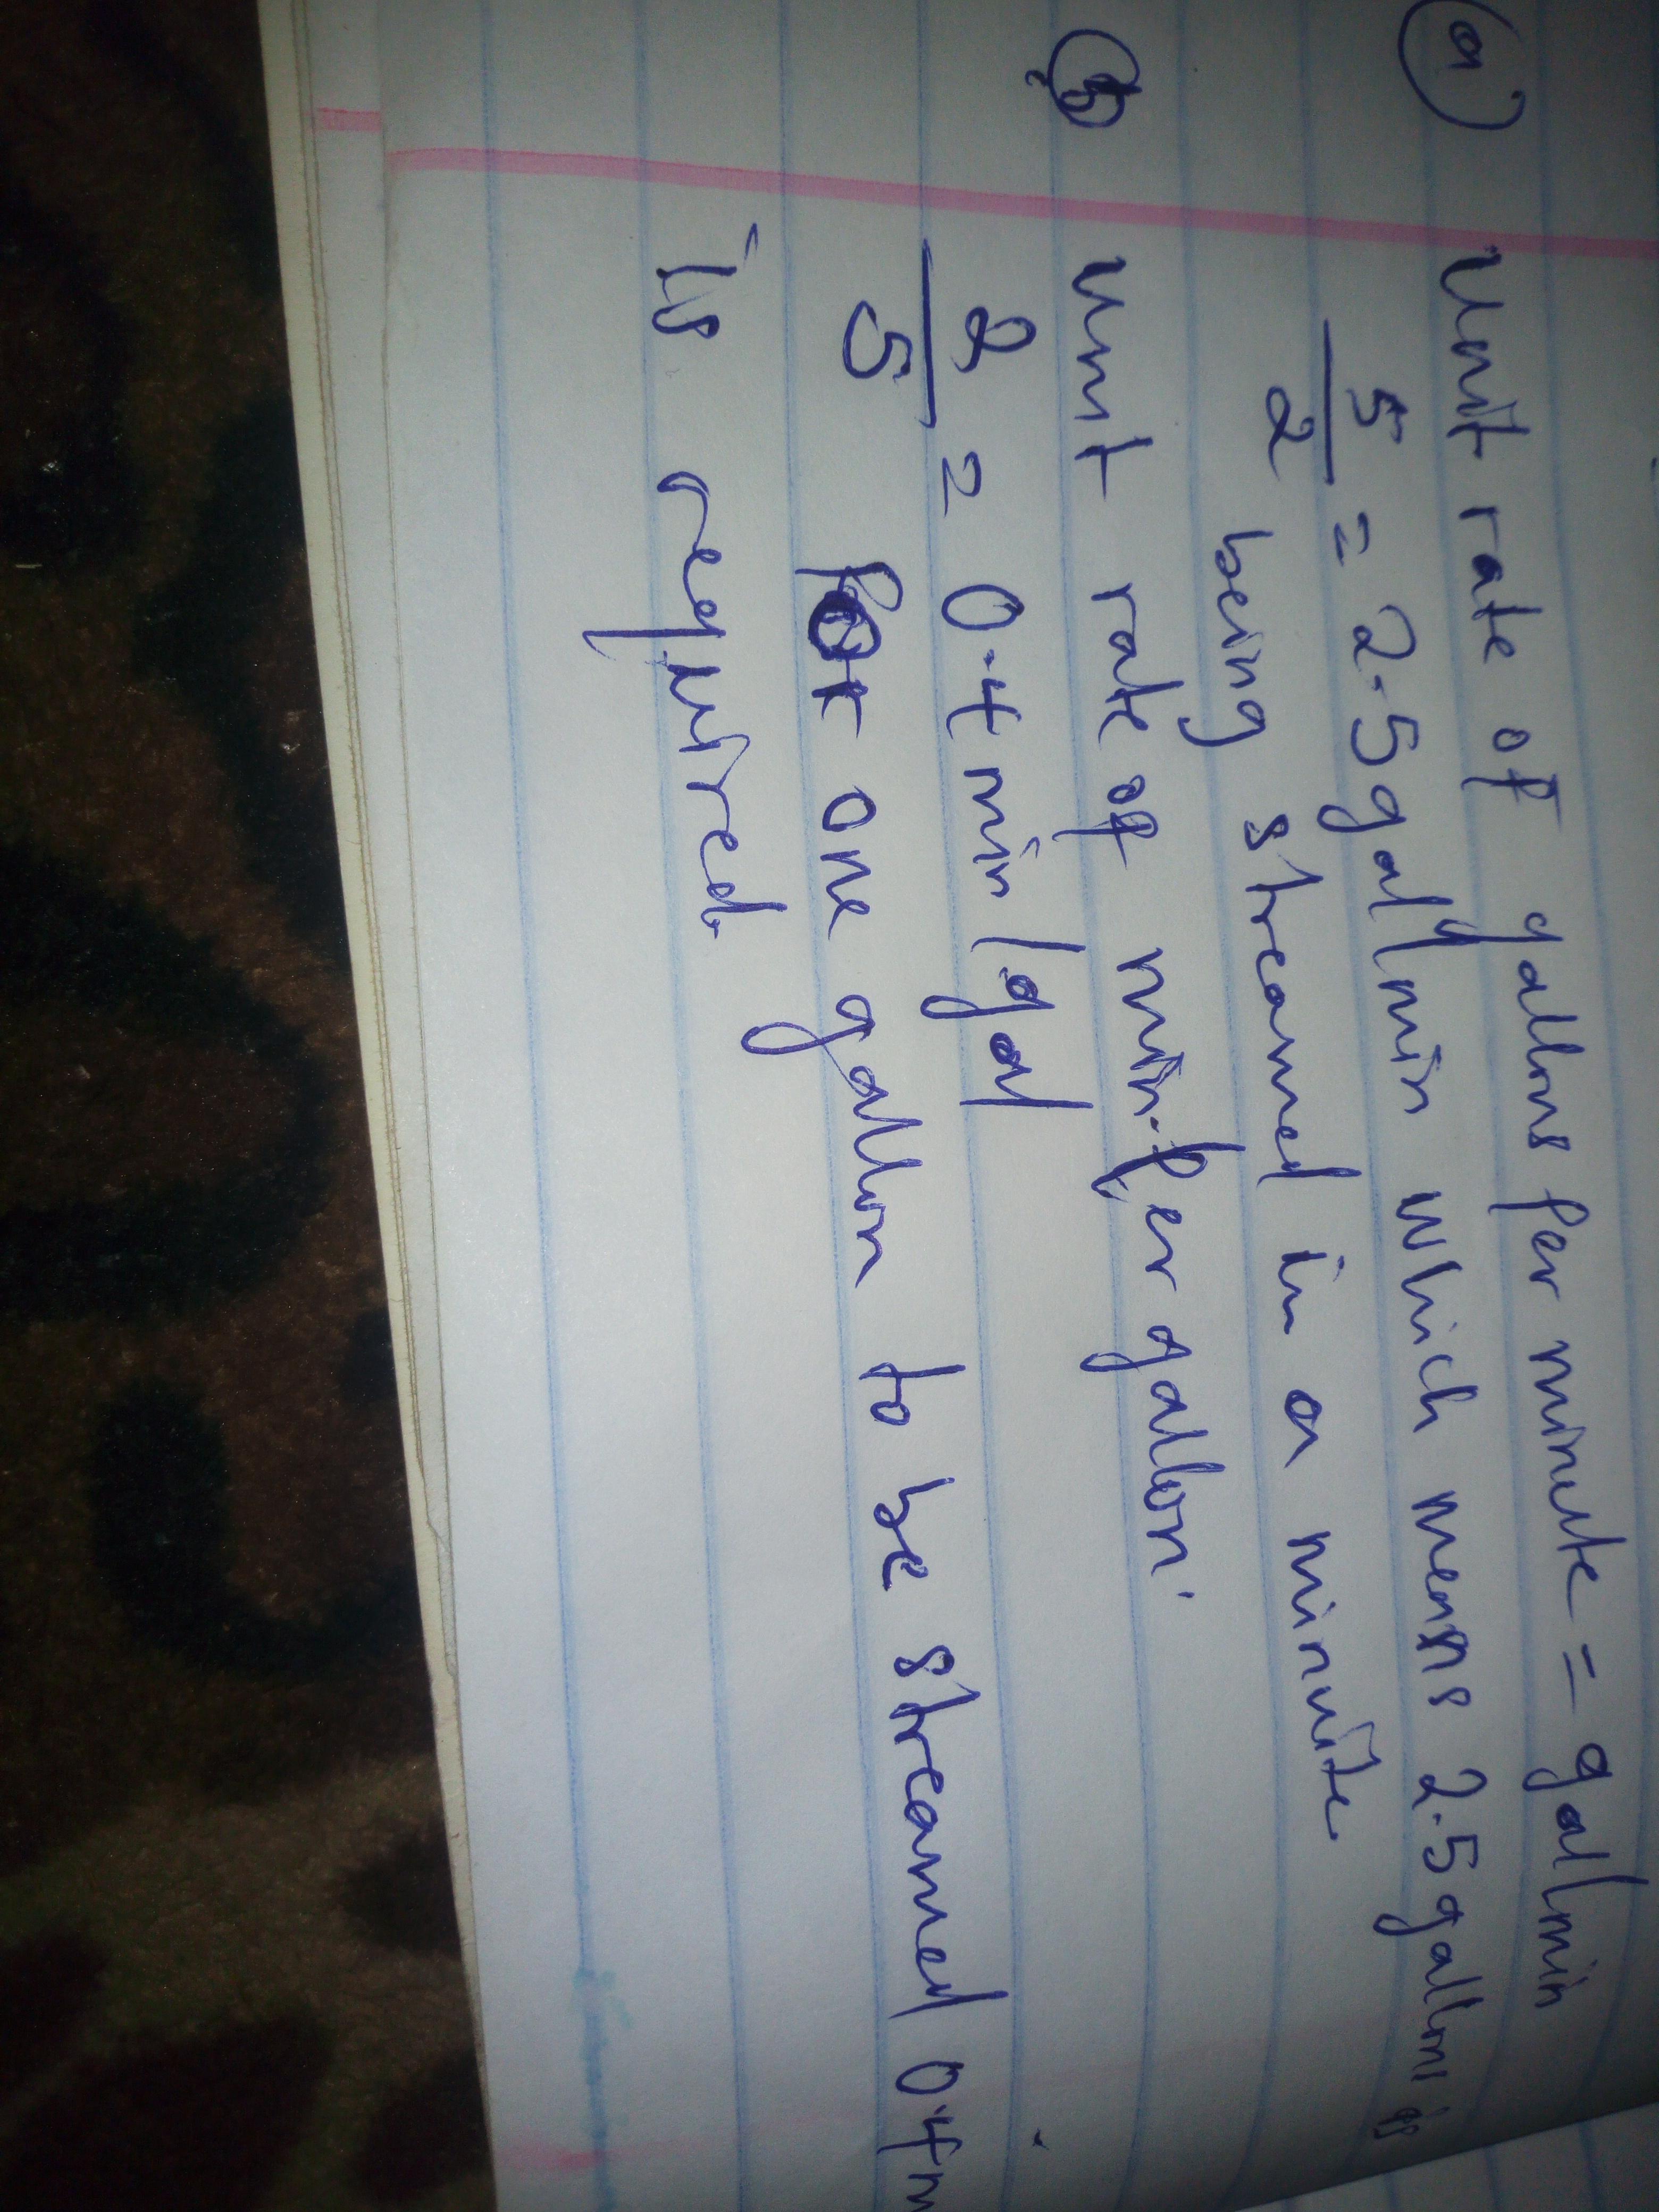 (a) Unit rate of gallons per minute = gal/min
5/2 = 2.5 gal/min which means 2.5 gallons is
being streamed in a minute
(b) Unit rate of min. per gallon.
2/5 = 0.4 min/gal
For one gallon to be streamed 0.4m
is required.